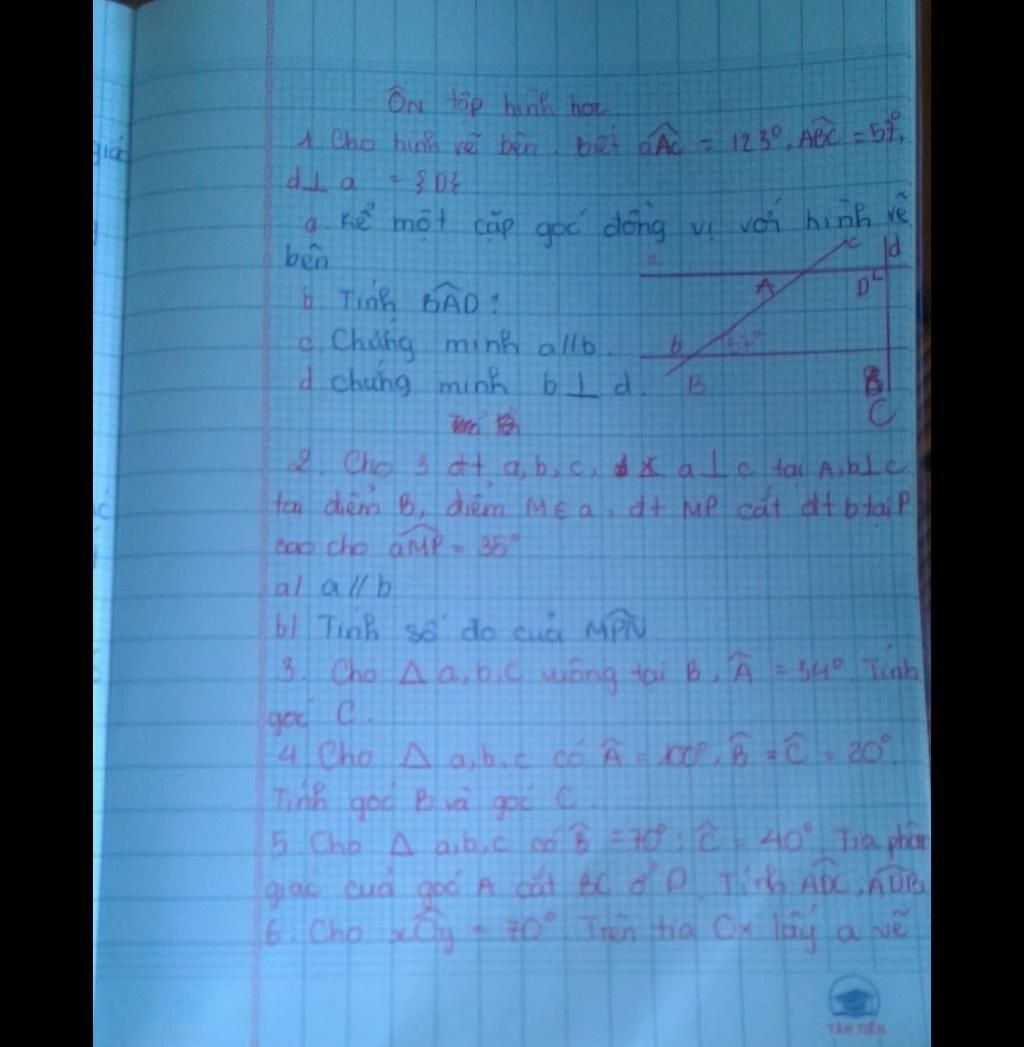 Ôn tập hình học
1. Cho hình vẽ bên. biết aAc = 123°, ABC = 57°,
d⊥ a = {D}
a. Kể một cặp góc đồng vị với hình vẽ
bên
b Tính BAD?
c. Chứng minh a//b.
d chứng minh b ⊥ d.
a
c
d
A
D
b
57°
B
C
2. Cho 3 đt a, b, c, a ⊥ c tại A, b⊥c
tại điểm B, điểm M∈a, đt MP cắt đt b tại P
sao cho aMP = 35°
a/ a//b
b/ Tính số đo của MPN
3. Cho Δ a, b, c vuông tại B, Â = 34° Tính
góc C.
4 Cho Δ a, b, c có Â = 100°, B = C = 20°.
Tính góc B và góc C
5 Cho Δ a, b, c có B = 70°; C = 40° Tia phân
giác của góc A cắt BC ở D. Tính ADC, ADB
6. Cho xOy = 70° Trên tia Ox lấy a vẽ
TÂN TIẾN